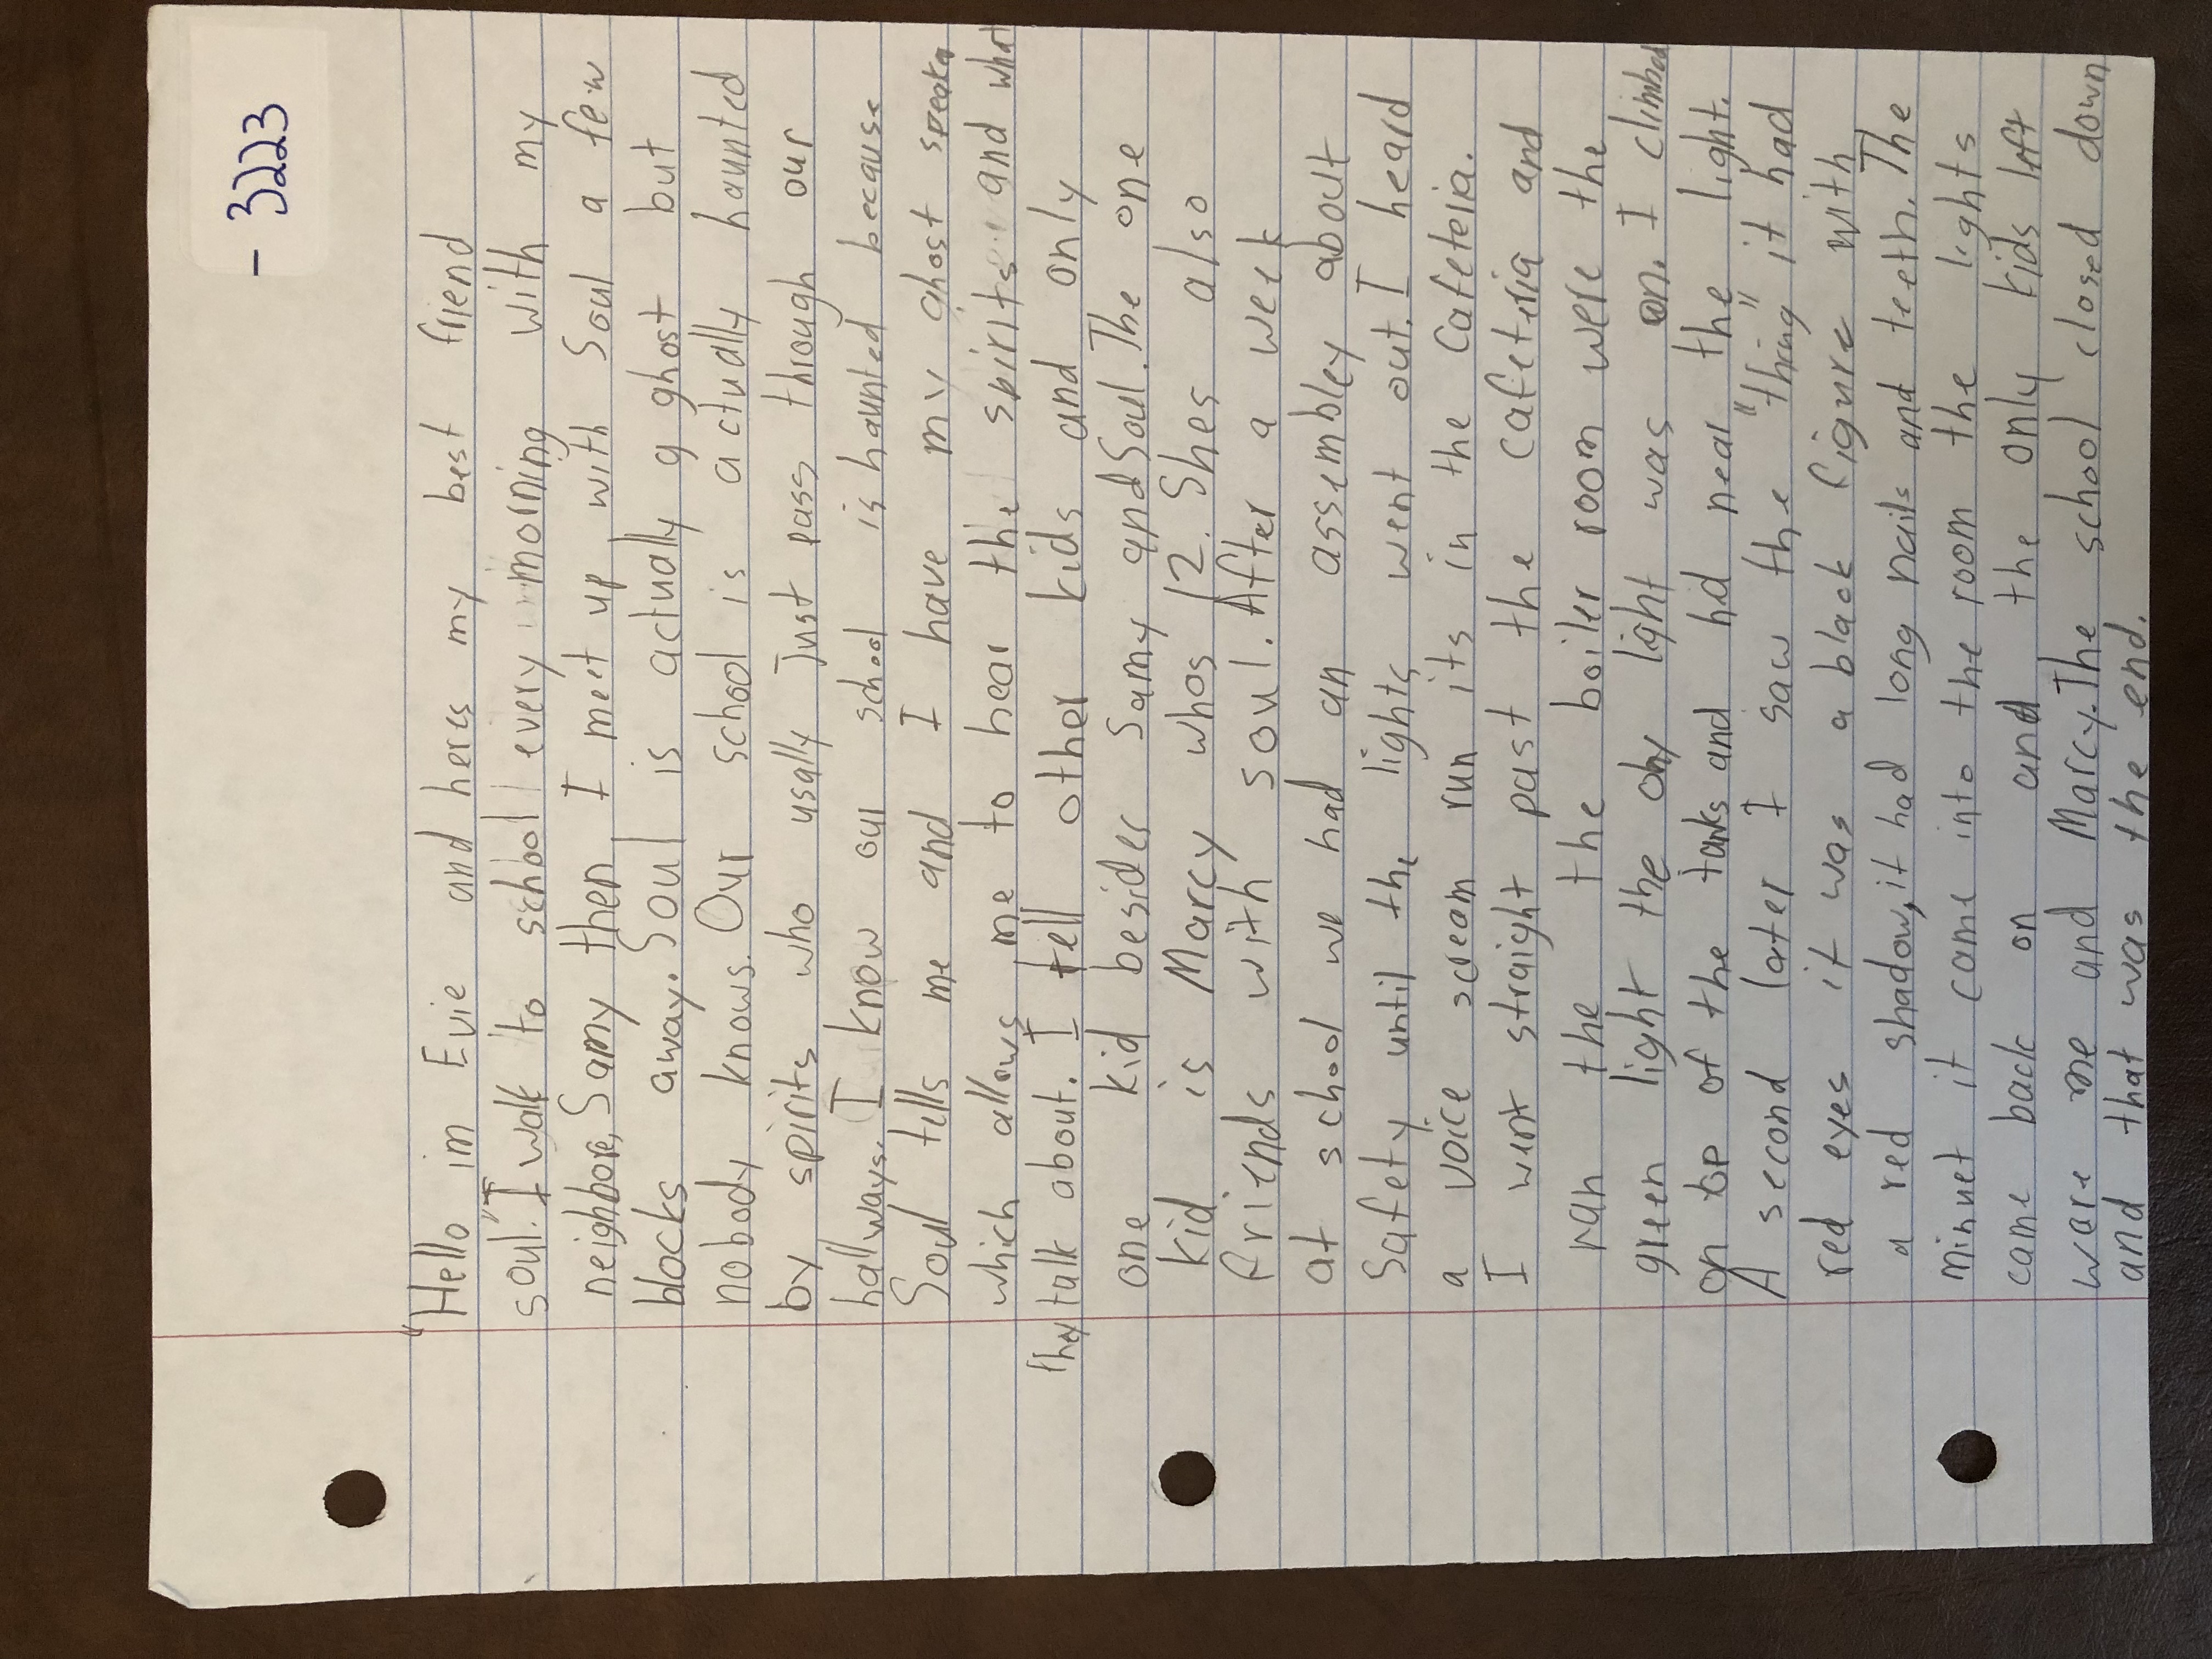 - 3223
"Hello im Evie and heres my best friend
soul." I walk to school every morning with my
neighbore, Samy then I meet up with Soul a few
blocks away. Soul is actually a ghost but
nobody knows. Our school is actually haunted
by spirits who usally Just pass through our
hallways. I know our school is haunted because
Soul tells me and I have my ghost speaker
which allows me to hear the spirits and what
they talk about. I tell other kids and only
one kid besides Samy and Soul. The one
kid is Marcy whos 12. Shes also
friends with soul. After a week
at school we had an assembley about
Safety until the lights went out. I heard
a voice scream run its in the Cafeteria.
I went straight past the cafeteria and
ran the the boiler room were the
green light the only light was on. I climbed
on top of the tanks and hid near the light.
A second later I saw the "thing" it had
red eyes it was a black figure with
a red shadow, it had long nails and teeth. The
minuet it came into the room the lights
came back on and the only kids left
ware me and Marcy. The school closed down
and that was the end.